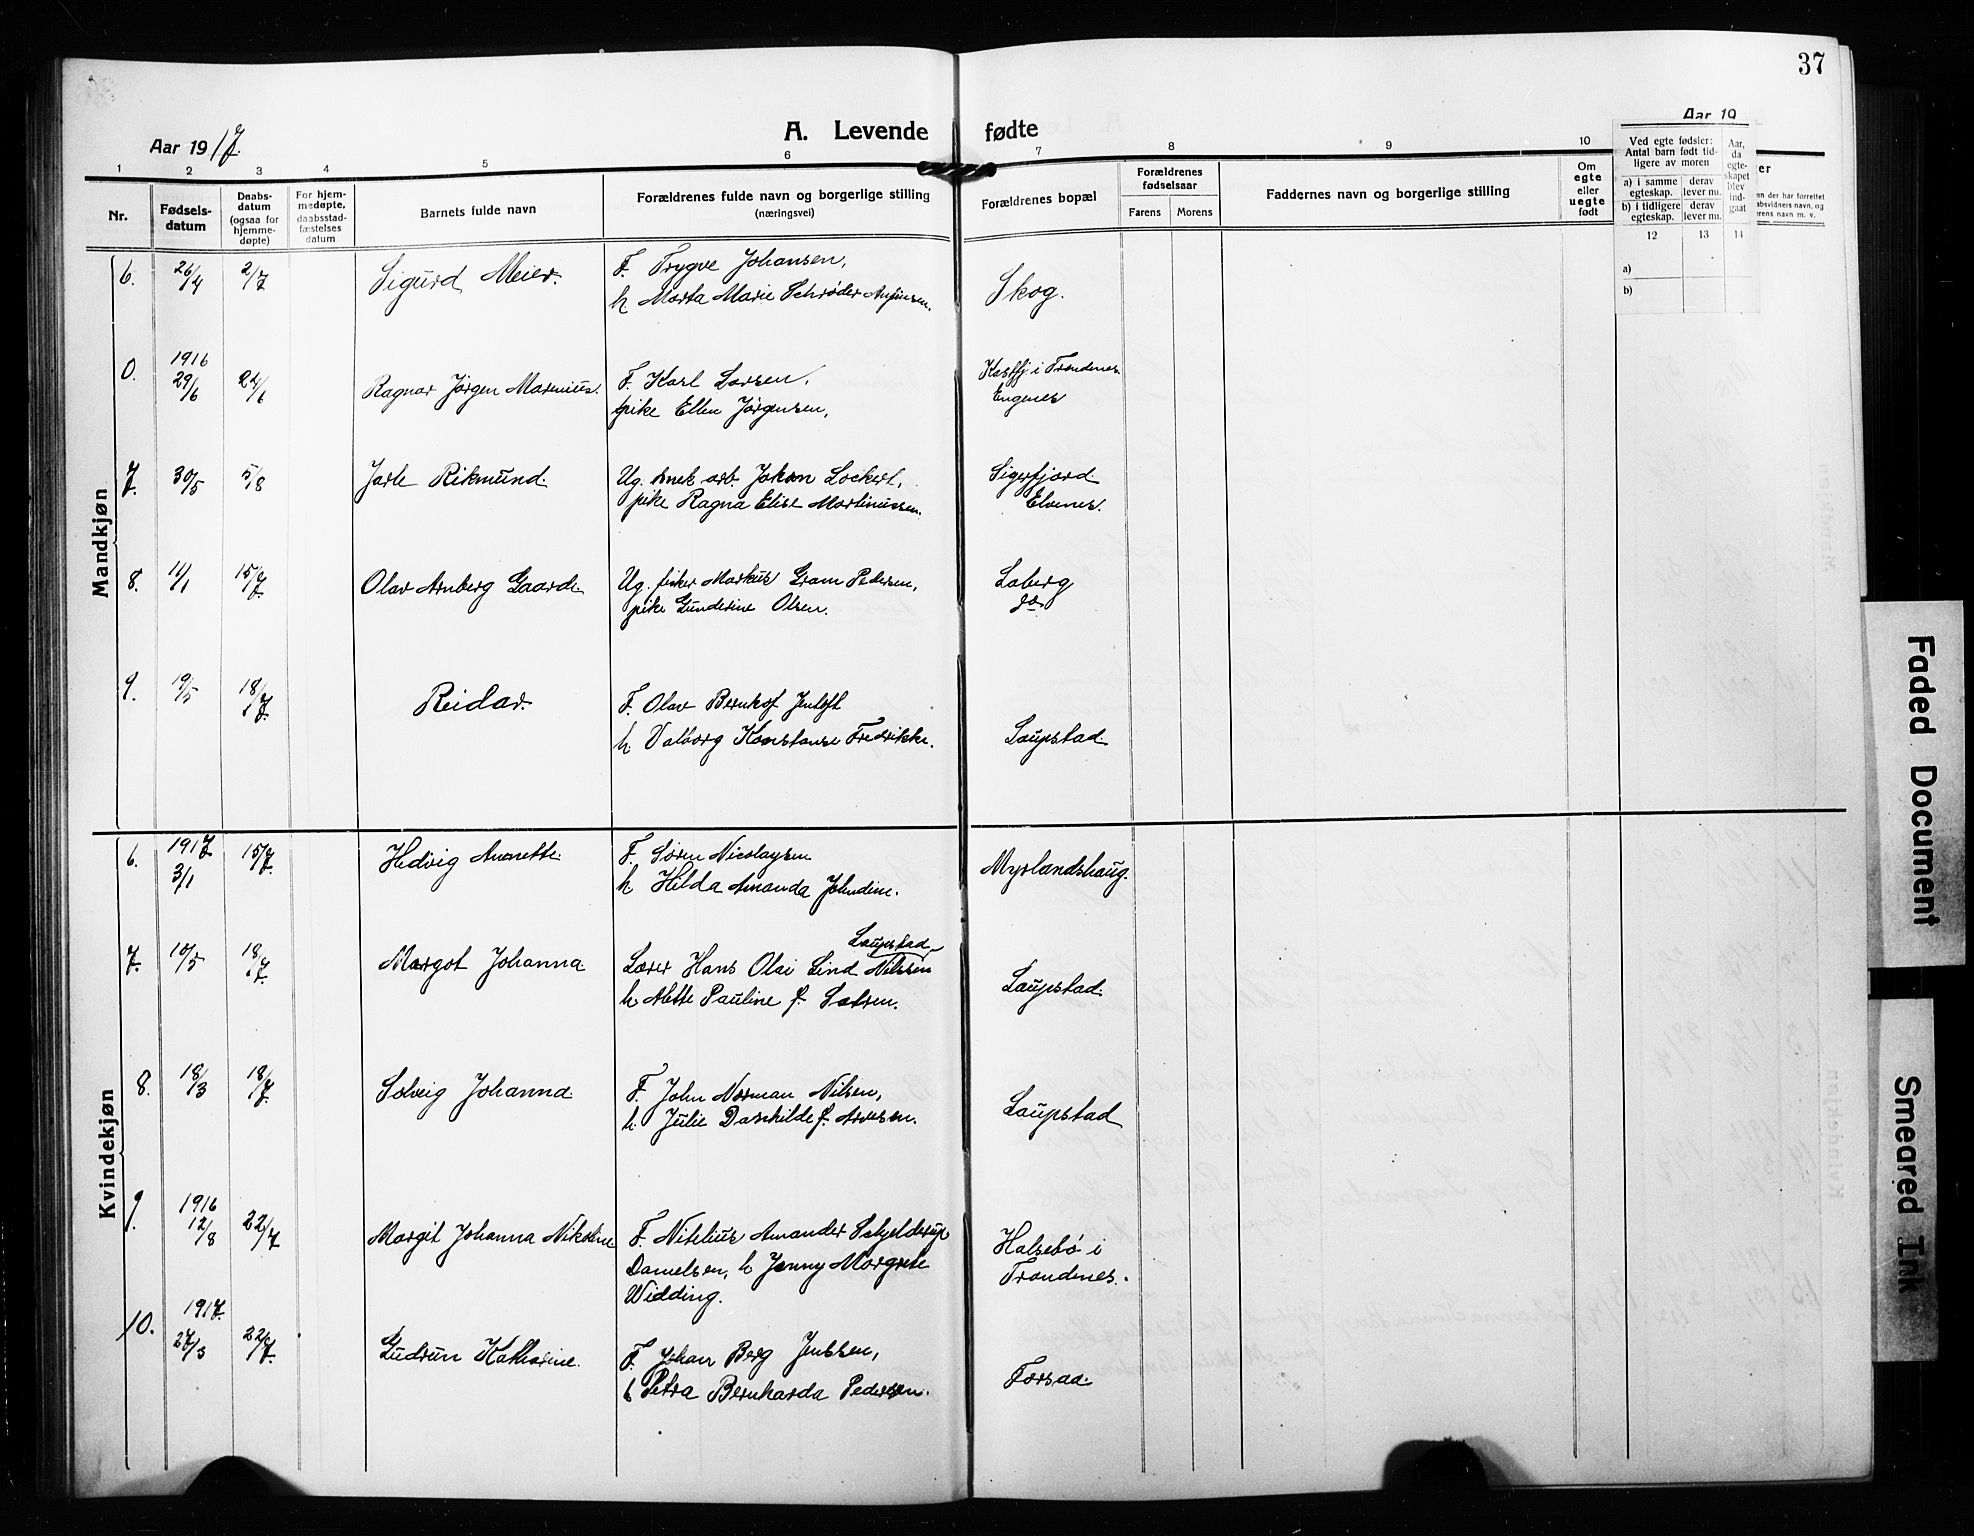 37
A. Levende fødte
Aar 1917.
Aar 19
1 2 3 4 5 6 7 8 9 10
Nr.
Fødsels-datum
Daabs-datum (ogsaa for hjemme-døpte)
For hjem-medøpte, daabsstad-fæstelses datum
Barnets fulde navn
Forældrenes fulde navn og borgerlige stilling (næringsvei)
Forældrenes bopæl
Forældrenes fødselsaar
Farens Morens
Faddernes navn og borgerlige stilling
Om egte eller uegte født
Ved egte fødsler: Antal barn født tid-ligere av moren
a) i samme egteskap. derav lever nu.
b) i tidligere egteskap. derav lever nu.
Aar, da egte-skapet blev ind-gaat
12 13 14
a)
b)
Mandkjøn
6. 26/4 2/7 Sigurd Meier. F. Trygve Johansen, Skog.
h Marta Marie Schrøder Anfinsen.
0. 1916 29/6 24/6 Ragnar Jørgen Marenius. F. Karl Larsen, Kasfj. i Trondenes.
pike Ellen Jørgensen, Engenes
7. 30/5 5/8 Jarle Rikmund. Ug. snek. arb. Johan Lockert, Sigerfjord
pike Ragna Elise Martinussen. Elvenes.
8. 11/1 15/7. Olav Arnberg Gaarde Ug. fisker Markus Gram Pedersen, Laberg
pike Gunderine Olsen. do
9. 19/5 18/7. Reidar. F. Olav Bernhof Jentoft
h Valborg Konstanse Fredrikke. Laupstad
Kvindekjøn
6. 1917 3/1 15/7. Hedvig Annette. F. Søren Nicolaysen Myrlandshaug.
h Hilda Amanda Johndine.
Laupstad
7. 10/5 18/7. Margot Johanna Lærer Hans Olai Lind Nilssen Laupstad.
h Mette Pauline f. Larsen.
8. 18/3 18/7. Solveig Johanna. F. John Norman Nilsen, Laupstad
h. Julie Darthilde f. Arnesen.
9. 1916 12/8 22/7 Margit Johanna Nikoline F. Nitelius Amander Schjelderup Halsebø i
Danielsen, h Jenny Margrete Trondenes.
Widding.
10. 1917. 27/3 22/7. Gudrun Katharine. F. Johan Berg Jenssen, Forsaa.
h Petra Bernharda Pedersen.
Faded Document
Smeared Ink